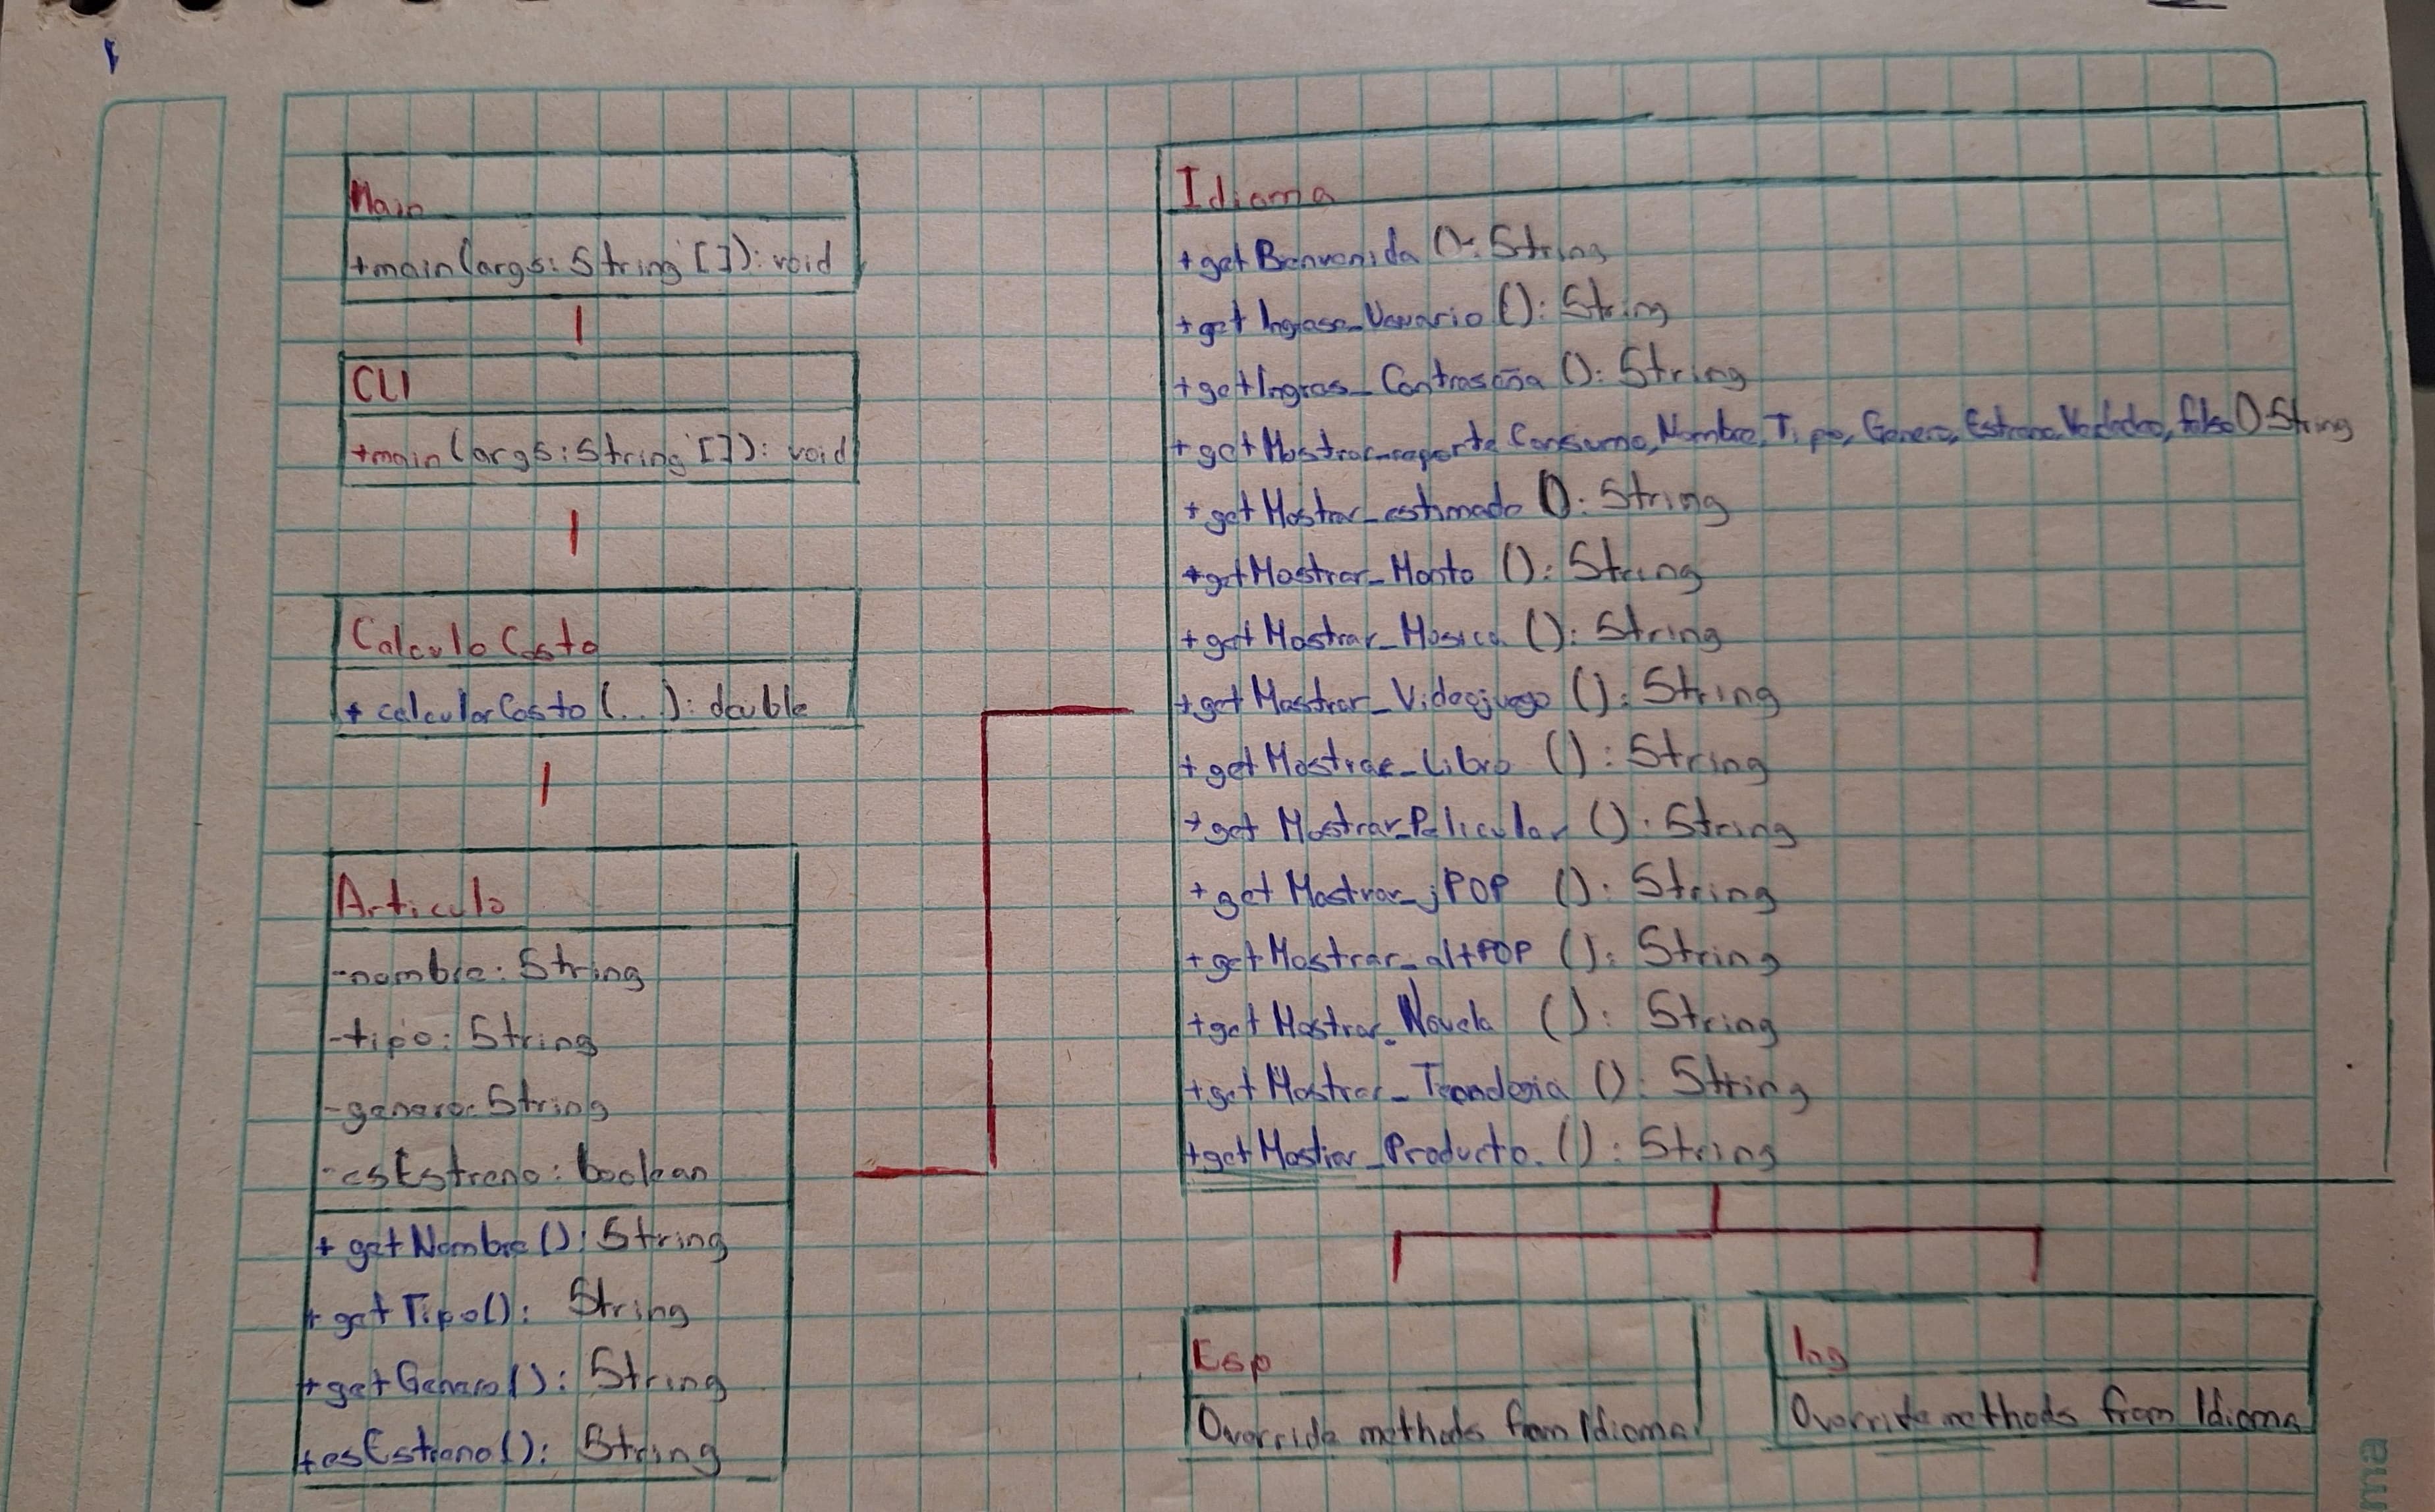 Main
+main(args: String[]): void
CLI
+main(args: String[]): void
Calculo Costo
+ calcularCosto(...): double
Articulo
-nombre: String
-tipo: String
-genero: String
-esEstreno: boolean
+ getNombre(): String
+ getTipo(): String
+getGenero(): String
+esEstreno(): String
Idioma
+getBienvenida (): String
+get Ingrese_Usuario (): String
+getIngres_Contraseña (): String
+getMostrar_reporte Consumo, Nombre, Tipo, Genero, Estreno, falso () String
+getMostrar_estimado (): String
+getMostrar_Monto (): String
+getMostrar_Musica (): String
+get Mostrar_Videojuego (): String
+get Mostrar_Libro (): String
+get Mostrar_Pelicular (): String
+get Mostrar_jPOP (): String
+getMostrar_altPOP (): String
+get Mostrar_Novela (): String
+get Mostrar_Tecnologia (): String
+getMostrar_Producto. (): String
Esp
Override methods from Idioma
Ing
Override methods from Idioma